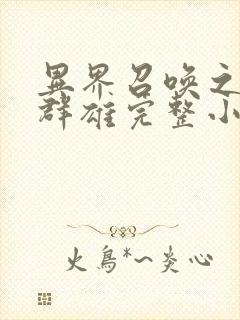 異界召唤之
群雄完整小
火鳥*~炎心